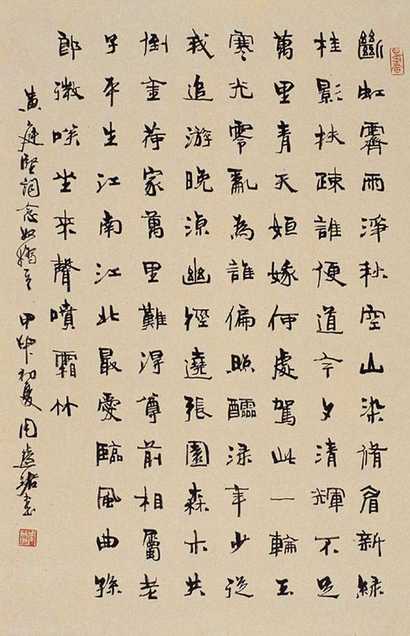 斷虹霽雨淨秋空山染脩眉新綠
桂影扶疏誰便道今夕清輝不足
萬里青天姮娥何處駕此一輪玉
寒光零亂為誰偏照醽淥年少從
我追游晚涼幽徑遶張園森木共
倒金荷家萬里難得尊前相屬老
子平生江南江北最愛臨風曲孫
郎微笑坐來聲噴霜竹
黃庭堅詞念奴嬌 甲申初夏周慧珺書